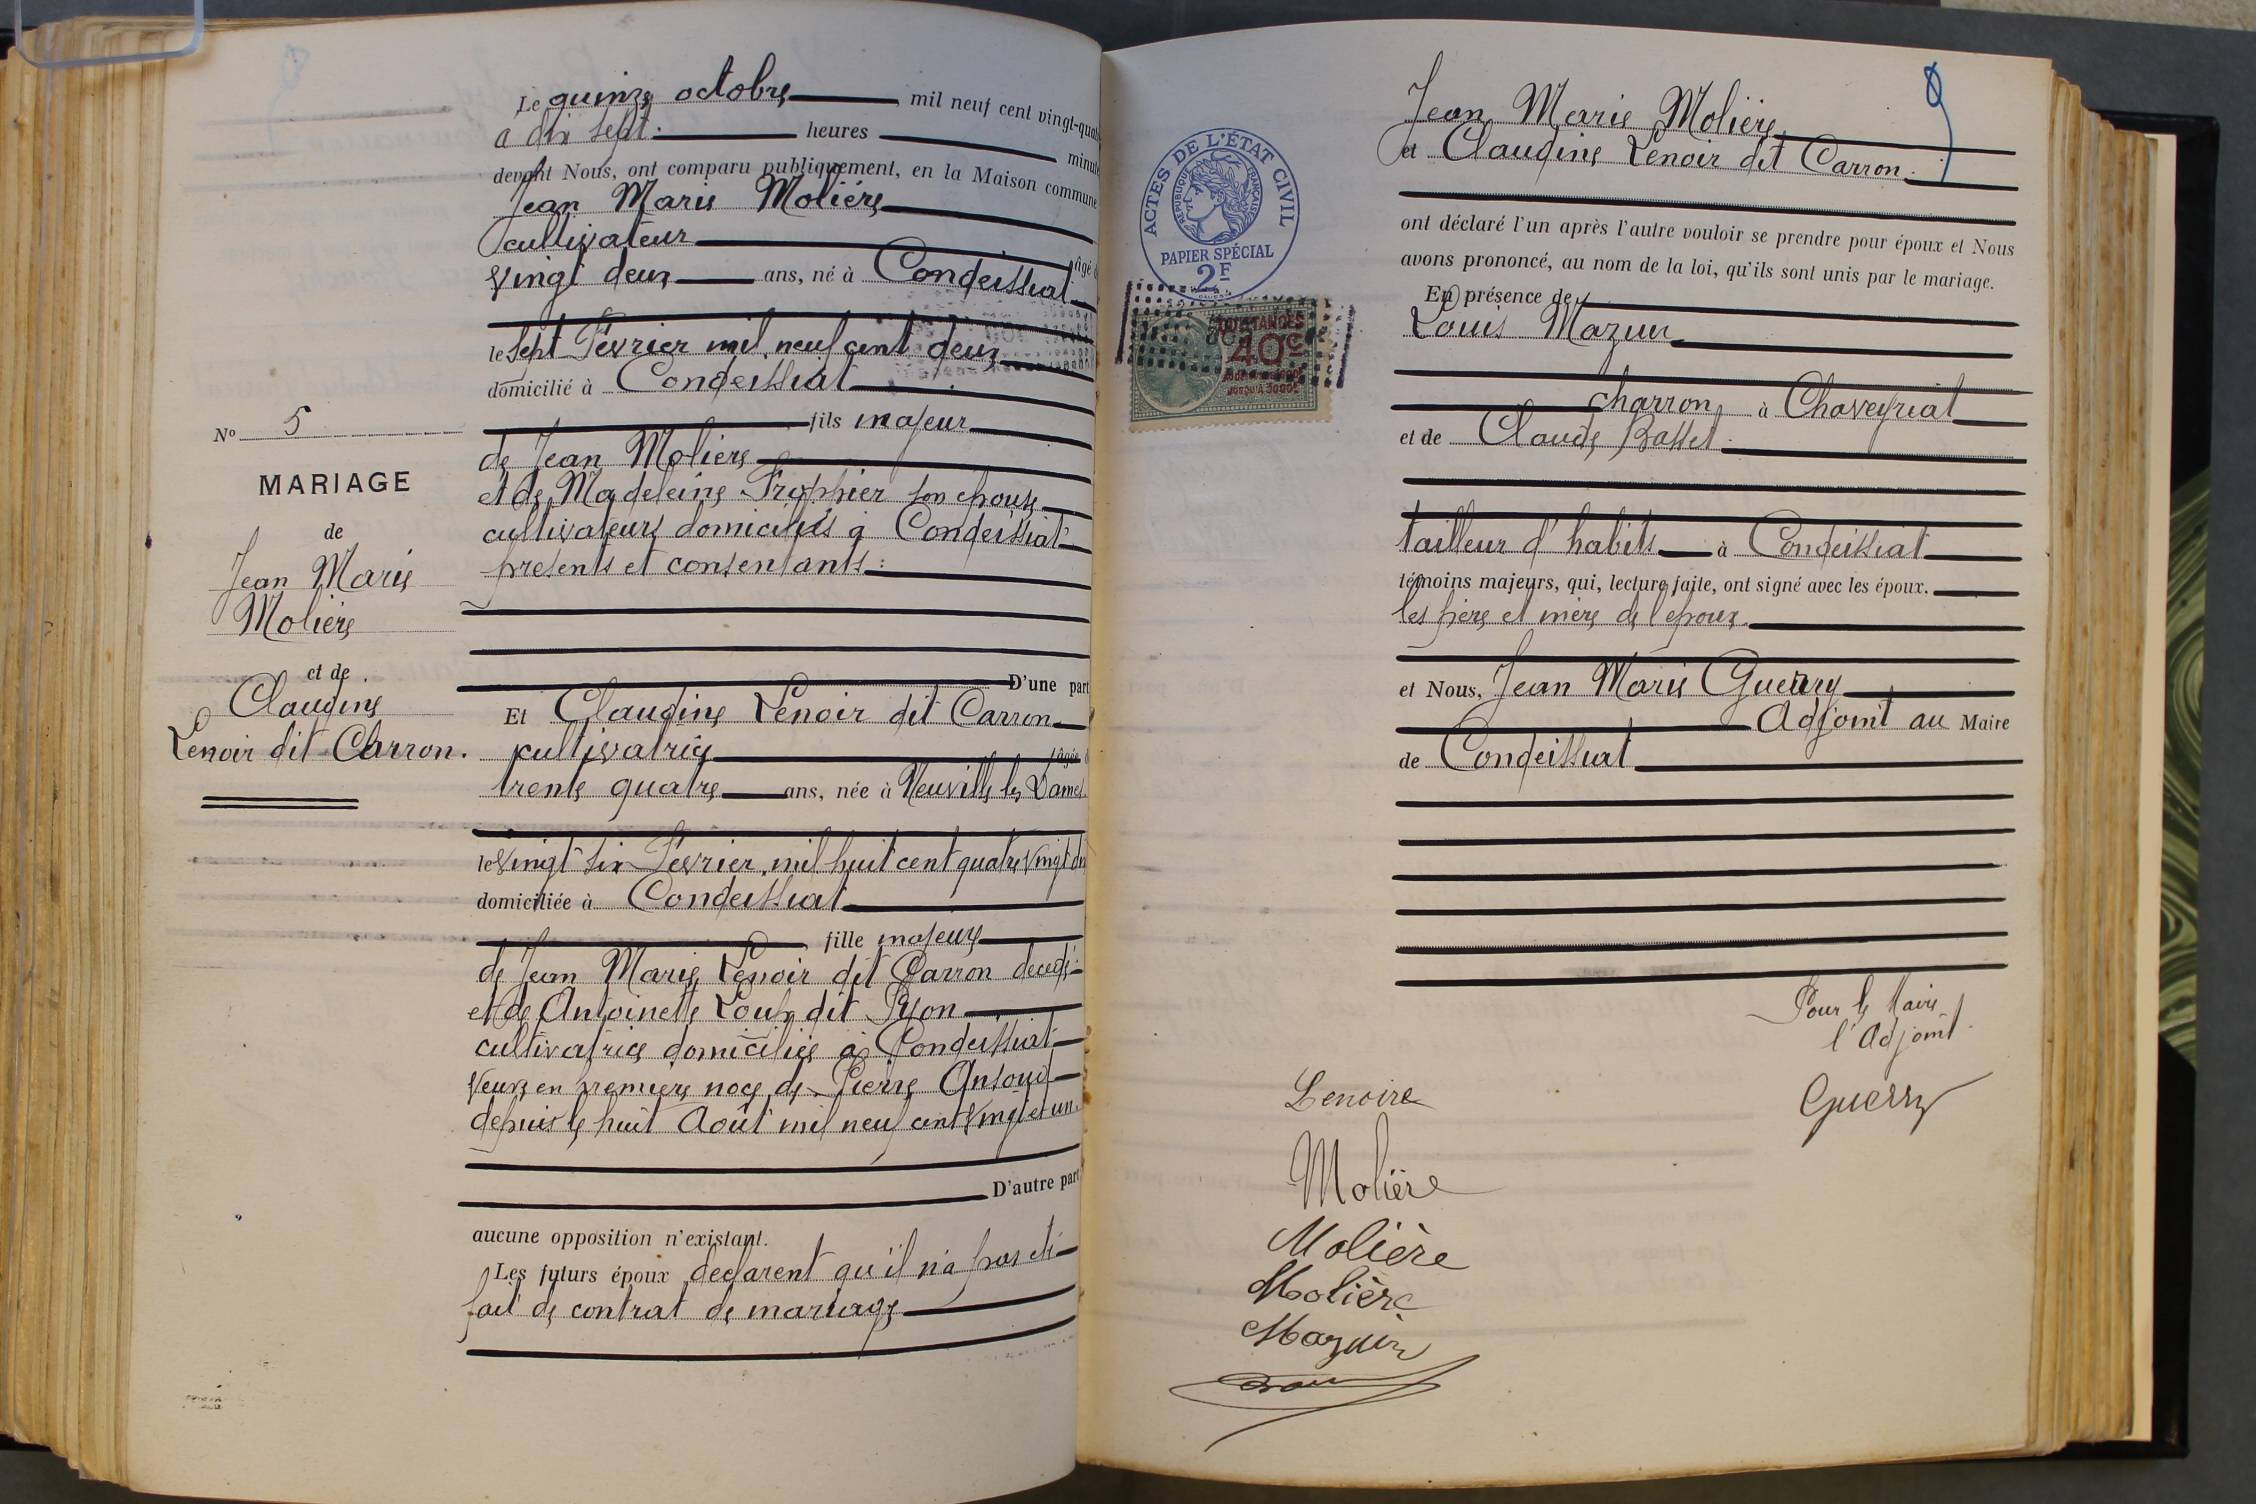 Le quinze octobre mil neuf cent vingt-quatre
à dix sept heures minutes
devant Nous, ont comparu publiquement, en la Maison commune
Jean Marie Molière
cultivateur âgé de
vingt deux ans, né à Condeissiat
le sept Février mil neuf cent deux
domicilié à Condeissiat
fils majeur
de Jean Molière
et de Madeleine son épouse
cultivateurs domiciliés à Condeissiat
présents et consentants
D'une part
Et Claudine Lenoir dit Carron
cultivatrice âgée de
trente quatre ans, née à Neuville les Dames
le vingt six Février mil huit cent quatre vingt dix
domiciliée à Condeissiat
fille majeure
de Jean Marie Lenoir dit Carron décédé
et de Antoinette dit
cultivatrice domiciliée à Condeissiat
veuve en premiere noce de Pierre
depuis le huit Août mil neuf cent vingt et un
D'autre part
aucune opposition n'existant.
Les futurs époux declarent qu'il n'a pas été
fait de contrat de mariage
No 5
MARIAGE
de
Jean Marie
Molière
et de
Claudine
Lenoir dit Carron.
ACTES DE L'ÉTAT CIVIL
RÉPUBLIQUE FRANÇAISE
PAPIER SPÉCIAL
2F
QUITTANCES
40c
Jean Marie Molière
et Claudine Lenoir dit Carron
ont déclaré l'un après l'autre vouloir se prendre pour époux et Nous
avons prononcé, au nom de la loi, qu'ils sont unis par le mariage.
En présence de
Louis Mazuir
charron à Chaveyriat
et de Claude
tailleur d'habits à Condeissiat
témoins majeurs, qui, lecture faite, ont signé avec les époux.
les père et mère de l'époux
et Nous, Jean Marie Guerry
Adjoint au Maire
de Condeissiat
Pour le Maire
l'Adjoint
Guerry
Lenoire
Molière
Molière
Molière
Mazuir